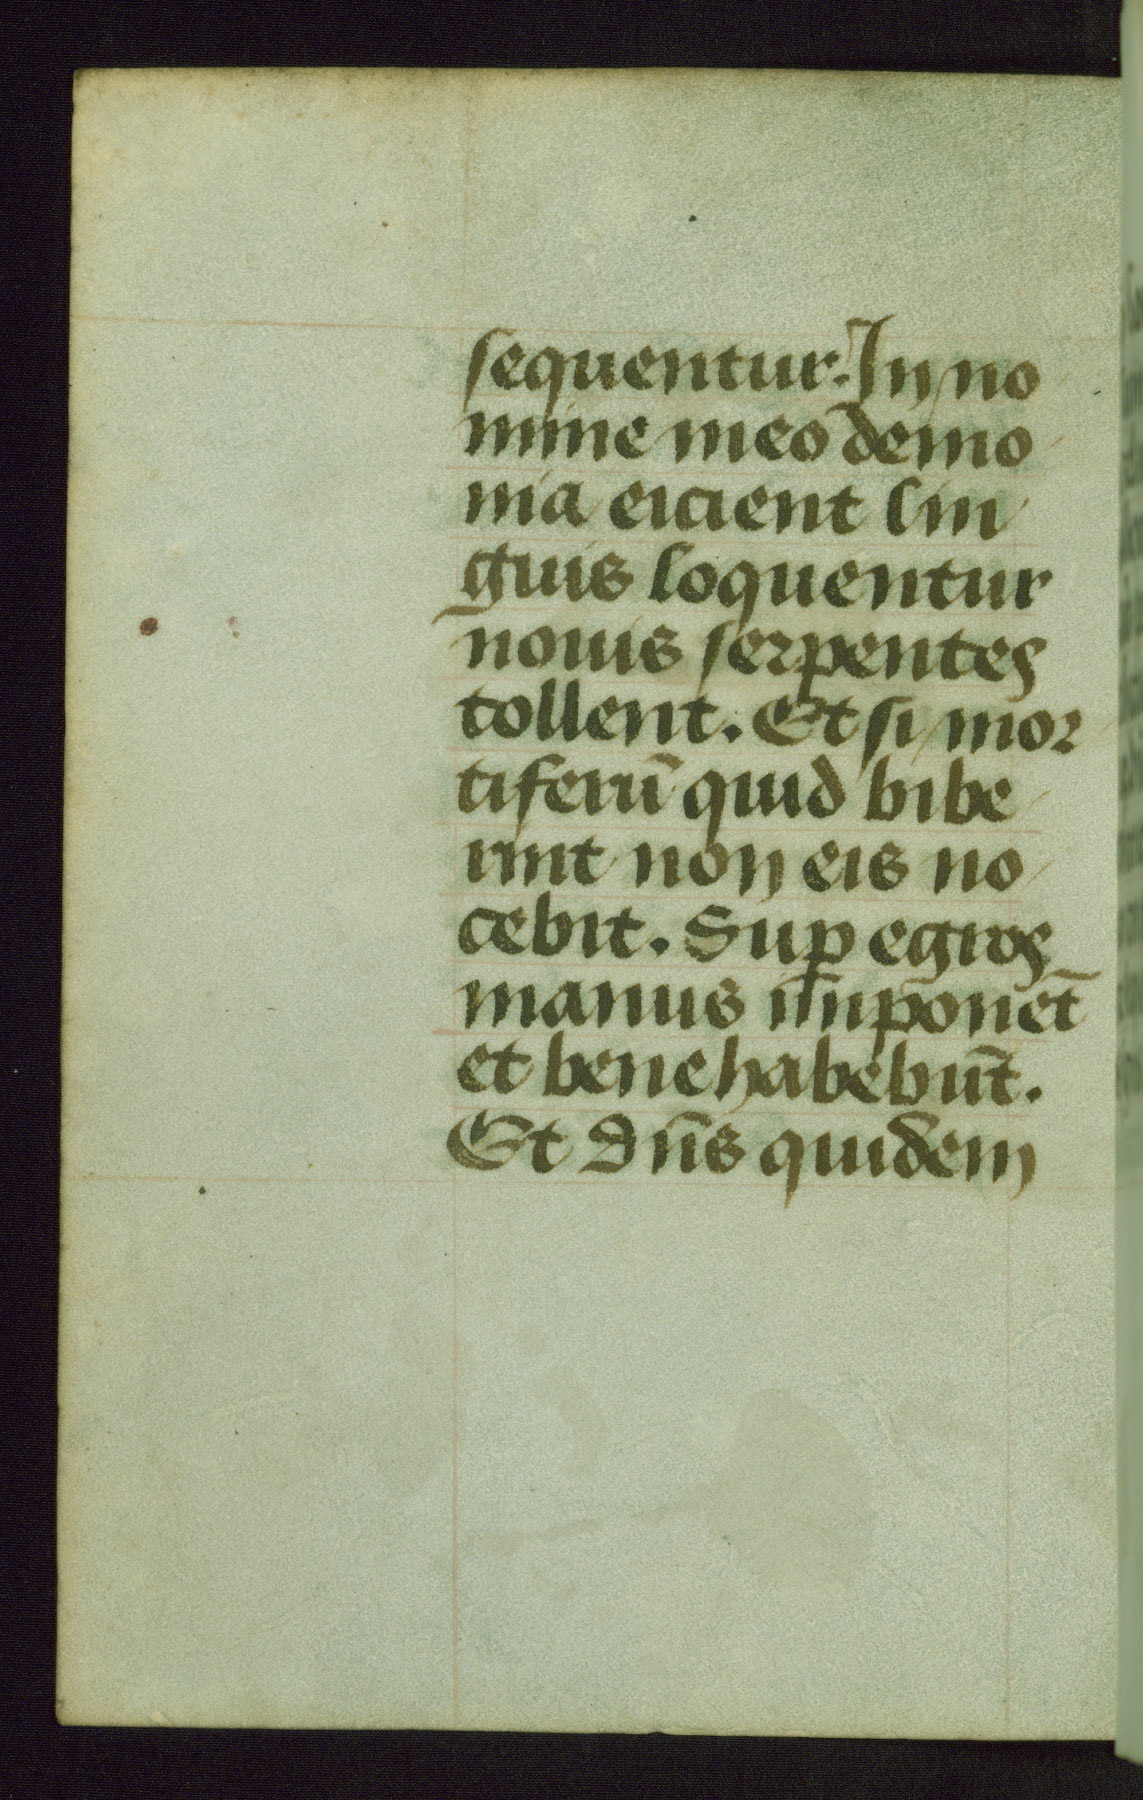 sequentur. In no
mine meo demo
nia eicient lin
guis loquentur
nouis serpentes
tollent. Et si mor
tiferū quid bibe
rint non eis no
cebit. Suꝑ egros
manus īmponēt
et bene habebūt.
Et dn̄s quidem